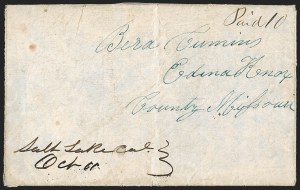 Paid 10
Bera Cumins
Edina Knox
County Missouri
Salt Lake Cal.
Oct.